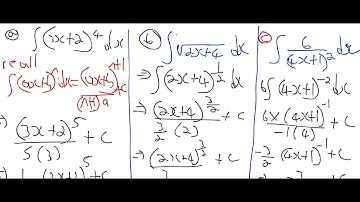 (a) ∫(3x+2)⁴ dx
recall
∫(ax+b)ⁿ dx = (ax+b)ⁿ⁺¹ / (n+1)a
⇒ (3x+2)⁵ / 5(3) + C
(b) ∫√(2x+4) dx
⇒ ∫(2x+4)^(1/2) dx
⇒ (2x+4)^(3/2) / (3/2 (2)) + C
⇒ (2x+4)^(3/2) / 3 + C
(c) ∫ 6/(4x+1)² dx
6∫(4x+1)⁻² dx
6×(4x+1)⁻¹ / -1(4) + C
-3/2 (4x+1)⁻¹ + C